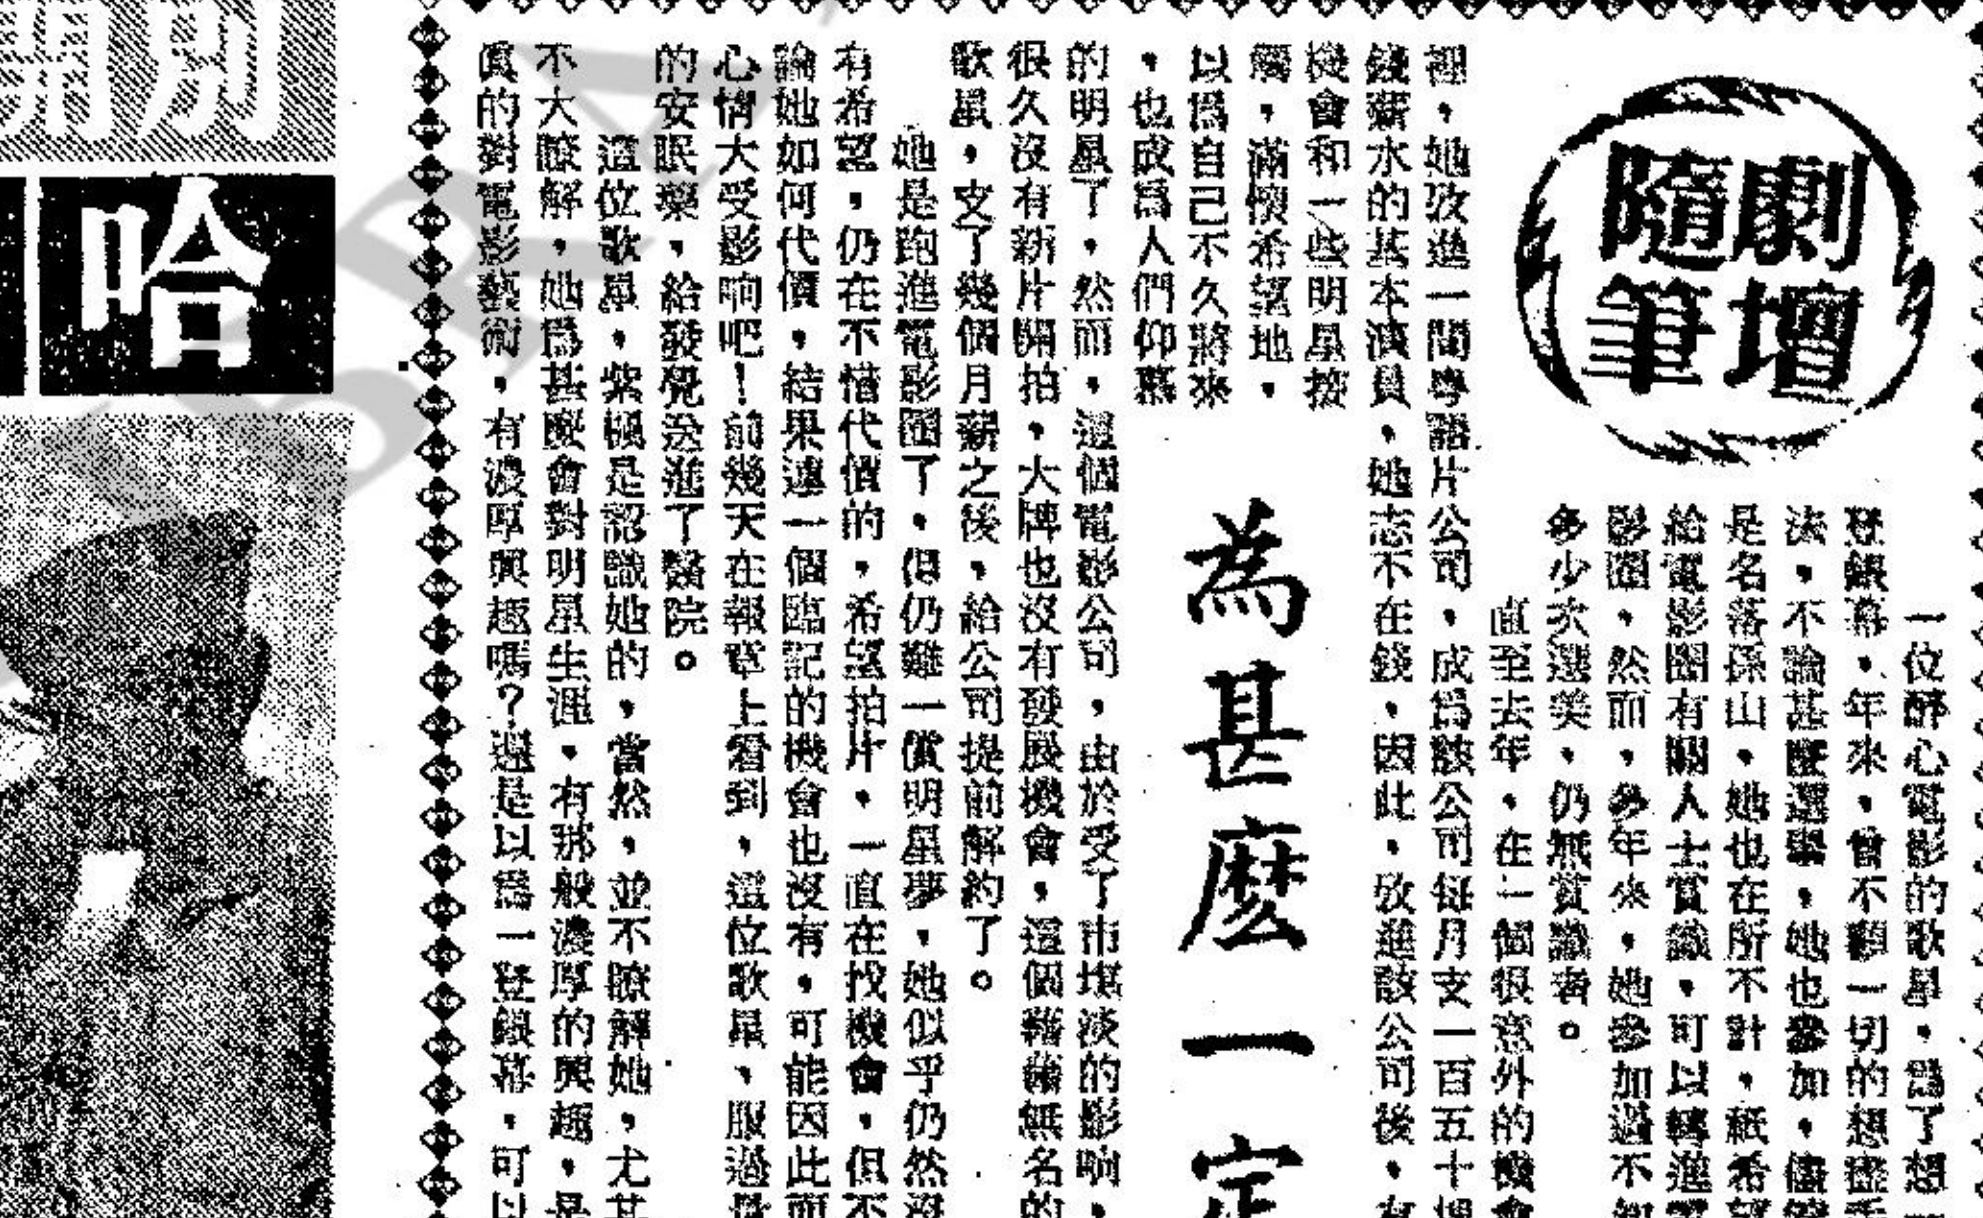 劇壇
隨筆
為甚麼一定
一位醉心電影的歌星，為了想一
登銀幕，年來，曾不顧一切的想盡
法，不論甚麼選舉，她也參加，儘管
是名落孫山，她也在所不計，紙希望
給電影圈有關人士賞識，可以轉進電
影圈，然而，多年來，她參加過不知
多少次選美，仍無賞識者。
直至去年，在一個很意外的機會
裡，她攷進一間粵語片公司，成為該公司每月支一百五十
錢薪水的基本演員，她志不在錢，因此，攷進該公司後，有
機會和一些明星接
觸，滿懷希望地，
以為自己不久將來
，也成為人們仰慕
的明星了，然而，這個電影公司，由於受了市塲淡的影响，
很久沒有新片開拍，大牌也沒有發展機會，這個藉藉無名的
歌星，支了幾個月薪之後，給公司提前解約了。
她是跑進電影圈了，但仍難一償明星夢，她似乎仍然沒
有希望，仍在不惜代價的，希望拍片，一直在找機會，但不
論她如何代價，結果連一個臨記的機會也沒有，可能因此而
心情大受影响吧！前幾天在報章上看到，這位歌星，服過量
的安眠藥，給發覺送進了醫院。
這位歌星，紫楓是認識她的，當然，並不瞭解她，尤其
不大瞭解，她為甚麼會對明星生涯，有那般濃厚的興趣，是
真的對電影藝術，有濃厚興趣嗎？還是以為一登銀幕，可以
別開
哈